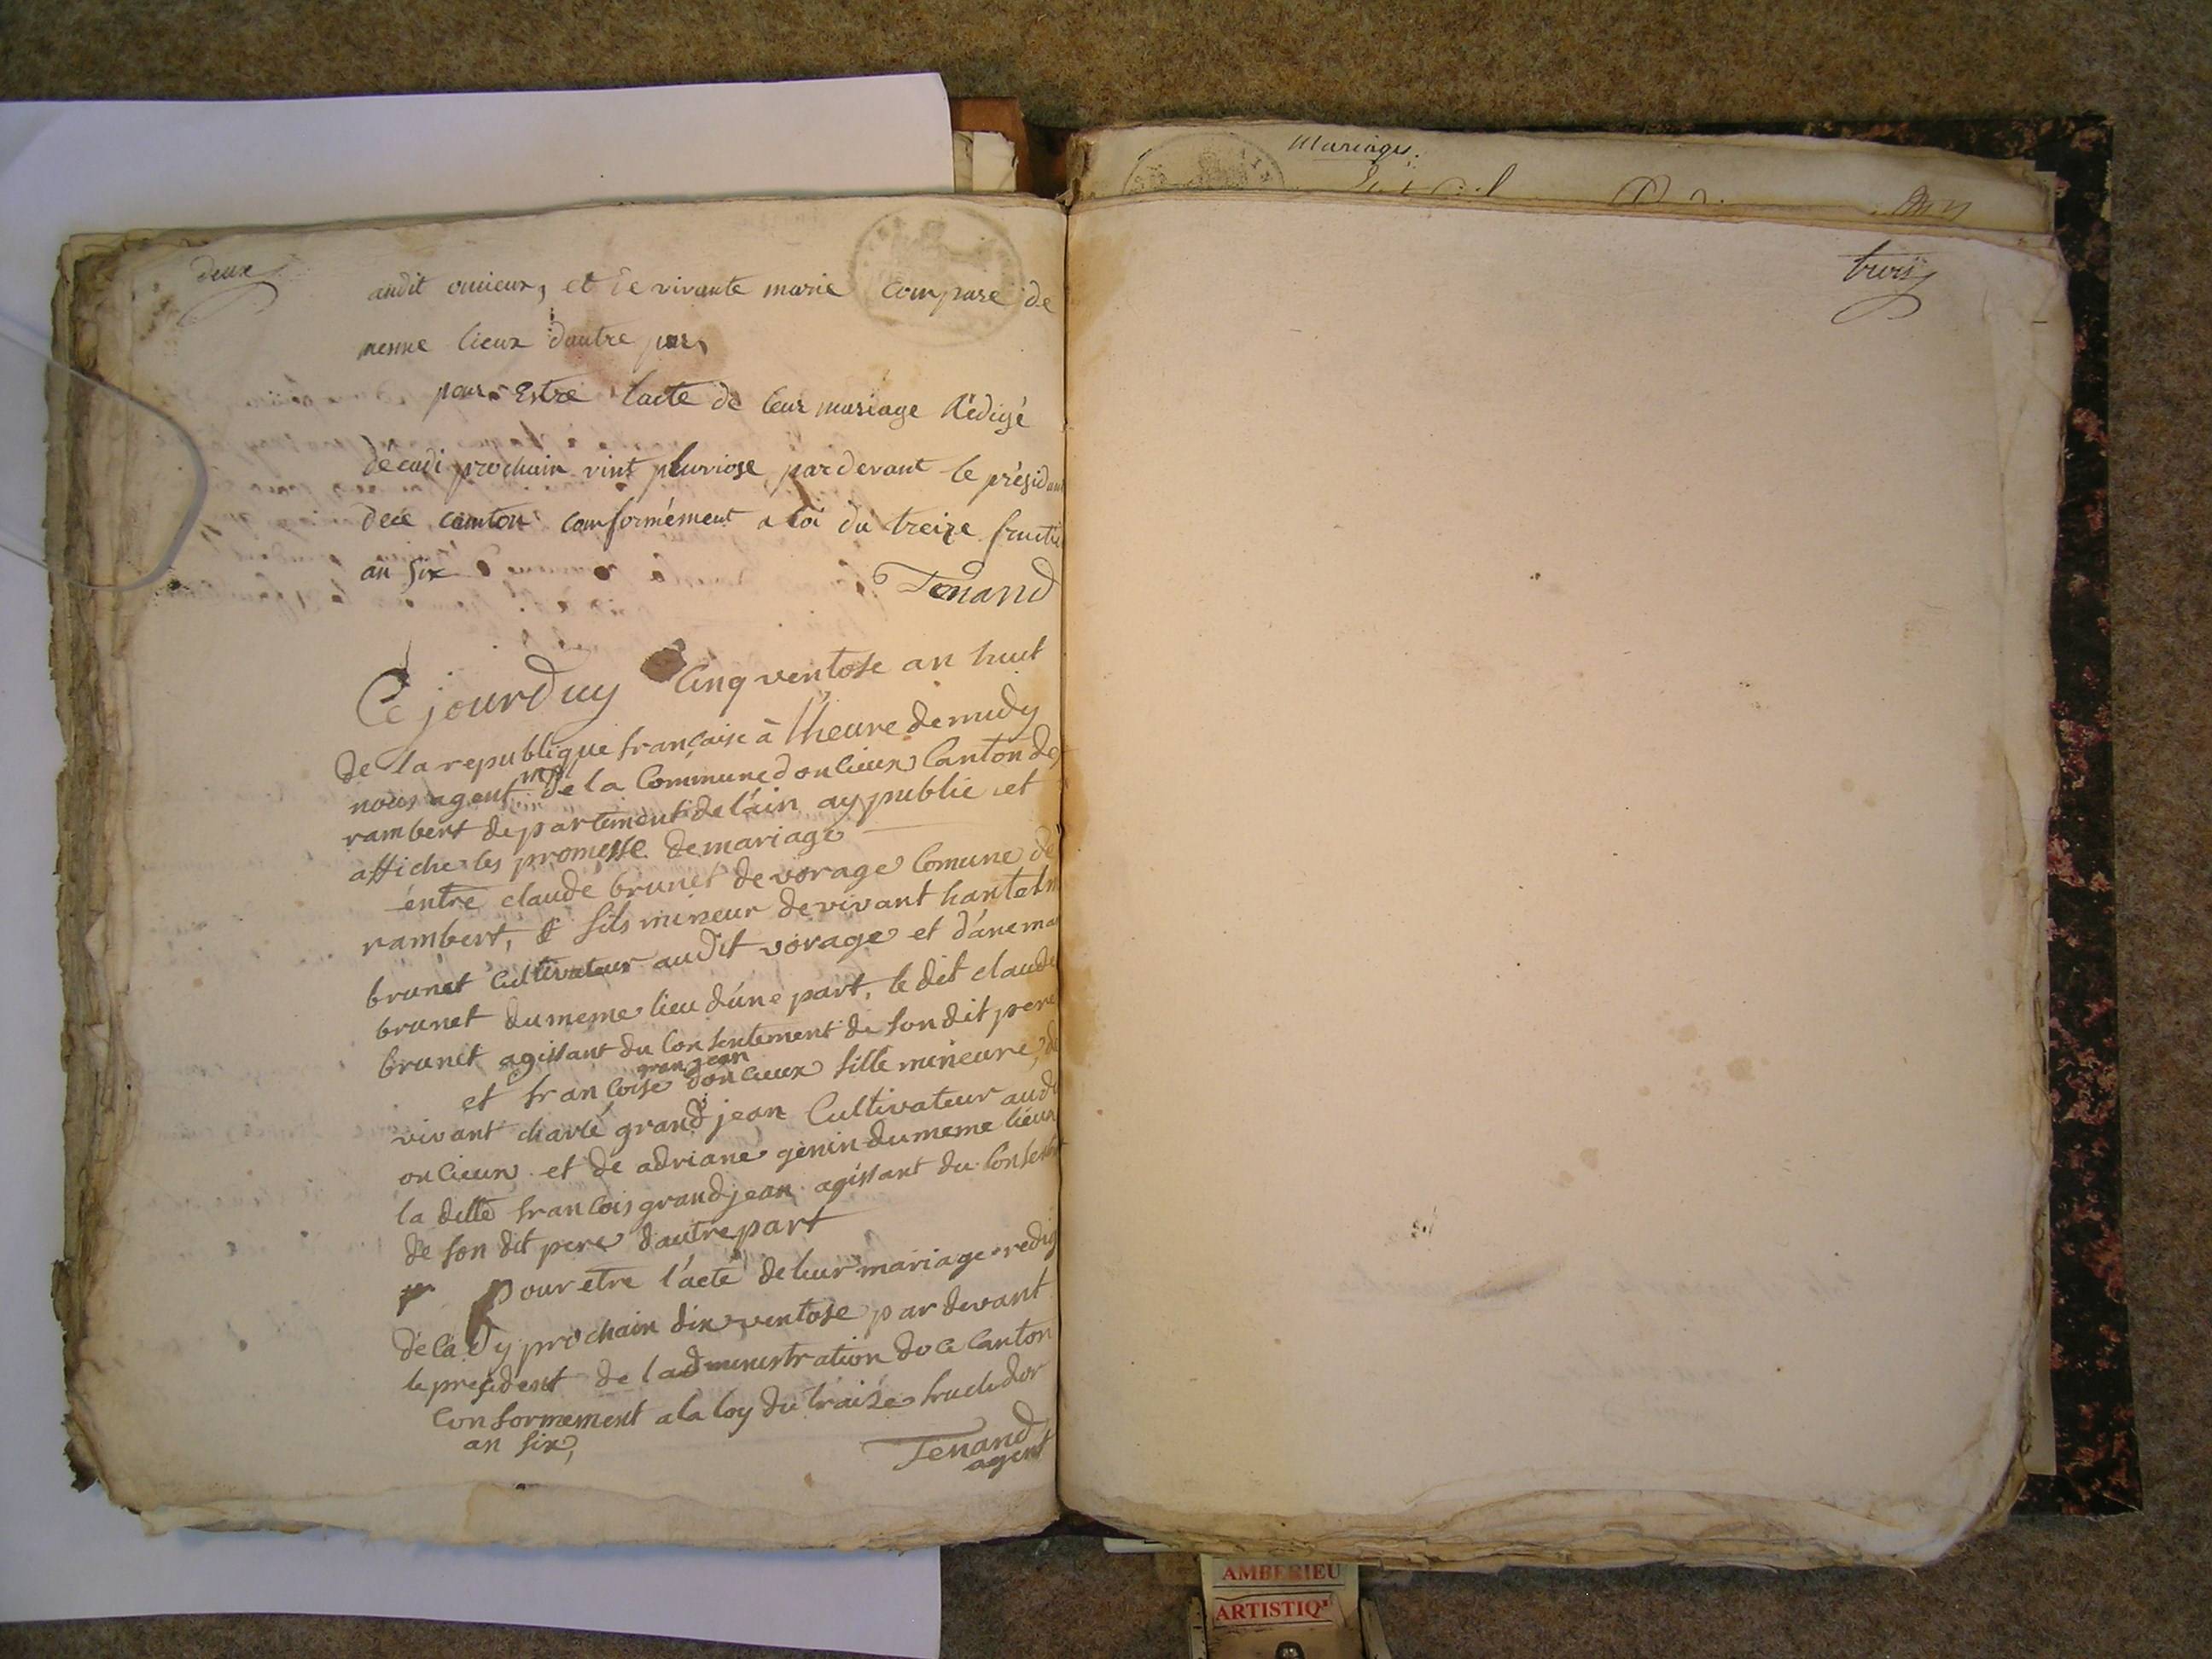 Mariages.
deux
audit oncieux, et de vivante marie compare de
mesme lieux dautre par,
pour Estre lacte de leur mariage Rédigé
décadi prochain vint pluviose pardevant le présidant
dece canton conformément a loi du treize fructi
an six
Tenand
Ce jourduy Cinq ventose an huit
de la republique francaise à lheure demidy
nous agent mpal de la Commune doncieux Canton de
rambert departement de láin ay publie et
affiche les promesse demariage
entre claude brunet de vorage Comune de
rambert, & fils mineur devivant hantelm
brunet Cultivateur audit vorage et dáne ma
brunet dumeme lieu dúne part, le dit claude
brunet agissant du Consentement de son dit pere
et francoise grandjean doncieux fille mineure, de
vivant charle grandjean Cultivateur audi
oncieux et de adriane genin dumeme lieux
la ditte francois grandjean agissant du Consent
de son dit pere dautrepart
pr pour etre lácté deleur mariage redig
décady prochain dix ventose par devant
le president de ladministration de ce Canton
Conformement a la loy du traize fructidor
an six,
Tenand
agent
trois
AMBERIEU
ARTISTIQ